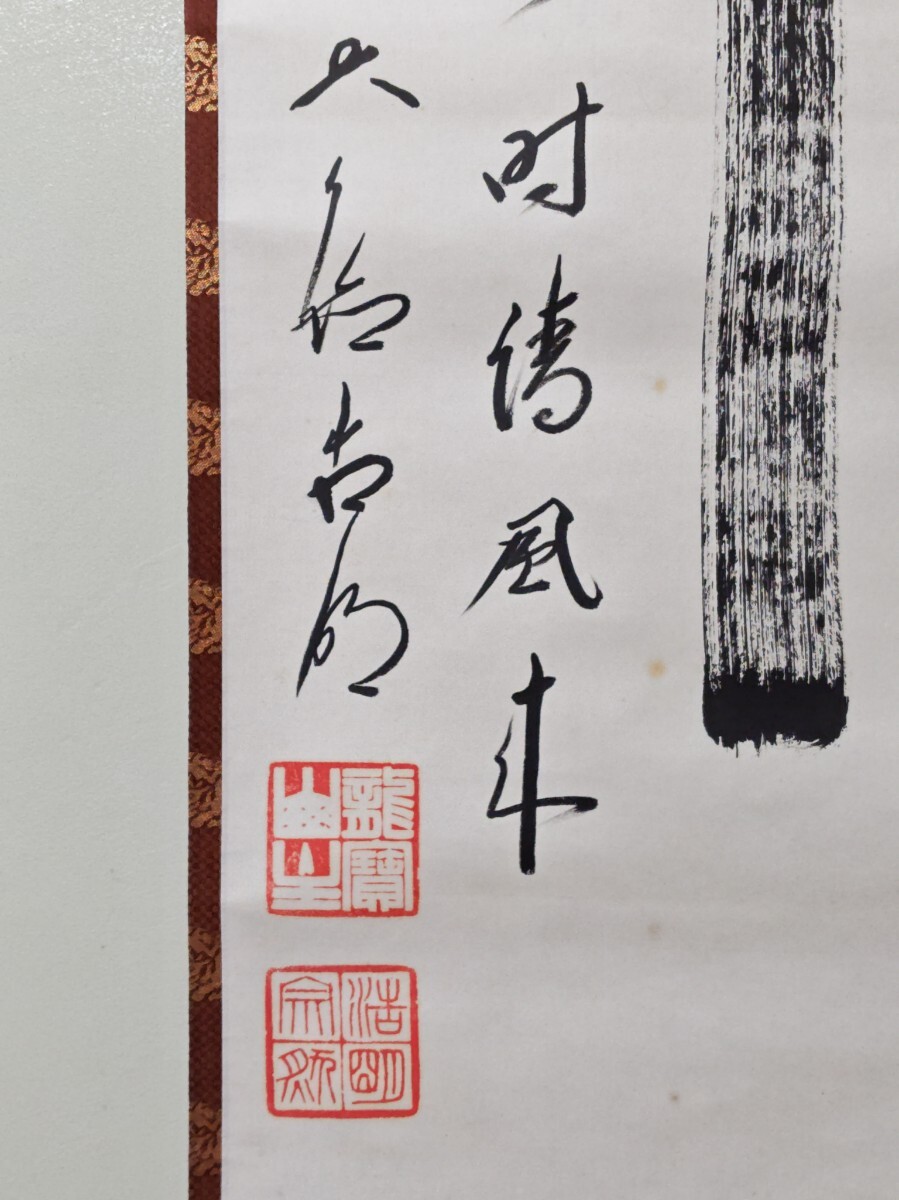 時清風来
大徳浩明
龍寶山主
浩明宗然